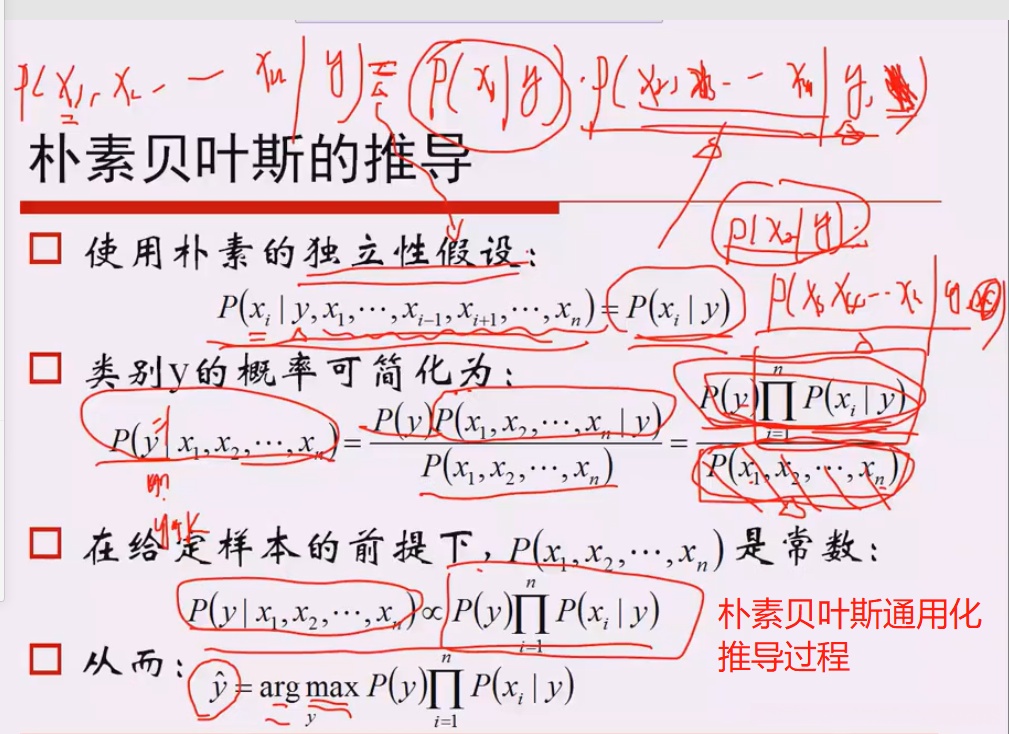 P(x₁, x₂ - - - xₙ | y) = P(x₁ | y) · P(x₂, x₃ - - xₙ | y,
朴素贝叶斯的推导
P(x₂ | y)
使用朴素的独立性假设:
P(xᵢ | y, x₁, ⋯, xᵢ₋₁, xᵢ₊₁, ⋯, xₙ) = P(xᵢ | y)
P(x₃ x₄ ⋯ xₙ | y
类别y的概率可简化为:
P(y | x₁, x₂, ⋯, xₙ) = P(y)P(x₁, x₂, ⋯, xₙ | y) / P(x₁, x₂, ⋯, xₙ) = P(y)∏ᵢ₌₁ⁿ P(xᵢ | y) / P(x₁, x₂, ⋯, xₙ)
在给定样本的前提下, P(x₁, x₂, ⋯, xₙ) 是常数:
P(y | x₁, x₂, ⋯, xₙ) ∝ P(y)∏ᵢ₌₁ⁿ P(xᵢ | y)
朴素贝叶斯通用化
推导过程
从而:
ŷ = arg max_y P(y)∏ᵢ₌₁ⁿ P(xᵢ | y)